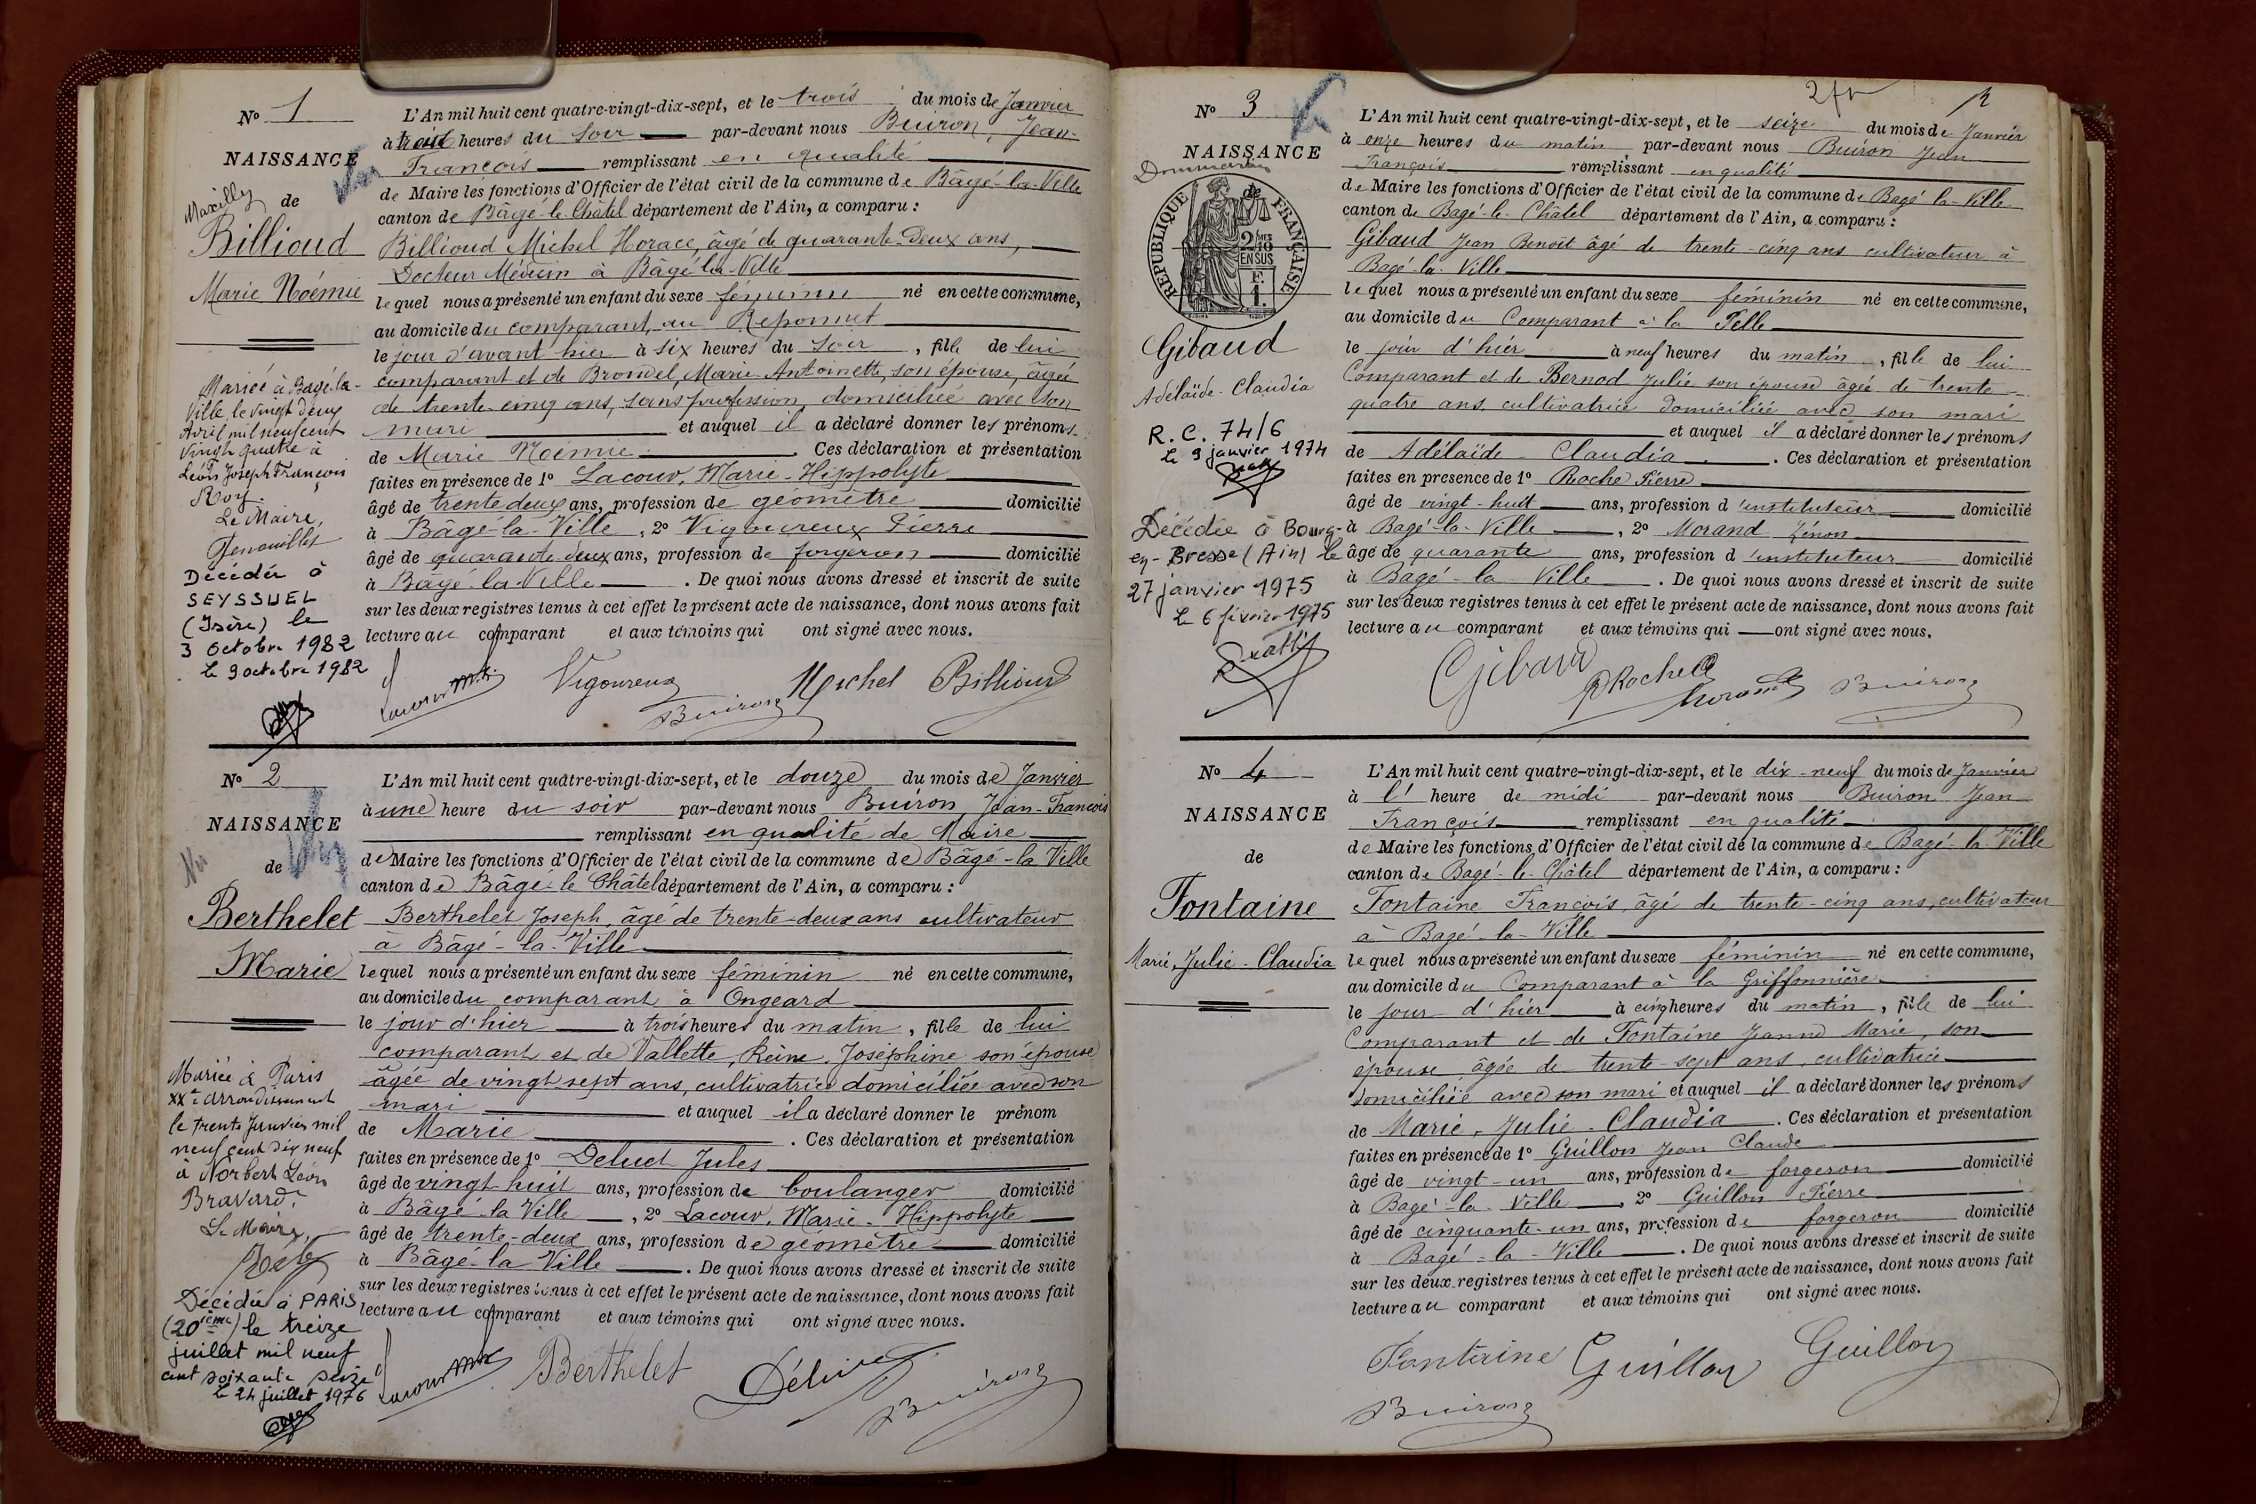 No 1
NAISSANCE
Maxilly
de
Billioud
Marie Noémie
Mariée à Bagé-la-
Ville, le vingt deux
Avril mil neuf cent
vingt quatre à
Léon Joseph François
Roy.
Le Maire,
Décédée à
SEYSSUEL
(Isère) le
3 octobre 1982
Le 9 octobre 1982
L'An mil huit cent quatre-vingt-dix-sept, et le trois du mois de Janvier
à trois heures du soir par-devant nous Buiron, Jean-
François remplissant en qualité
de Maire les fonctions d'Officier de l'état civil de la commune de Bâgé-la-Ville
canton de Bâgé-le-Châtel département de l'Ain, a comparu :
Billioud Michel Horace, âgé de quarante-deux ans,
Docteur Médecin à Bâgé-la-Ville
lequel nous a présenté un enfant du sexe féminin né en cette commune,
au domicile du comparant, au
le jour d'avant hier à six heures du soir, fille de lui
comparant et de Brondel, Marie Antoinette, son épouse, âgée
de trente-cinq ans, sans profession, domiciliée avec son
mari et auquel il a déclaré donner les prénoms
de Marie Noémie. Ces déclaration et présentation
faites en présence de 1º Lacour, Marie-Hippolyte
âgé de trente deux ans, profession de géomètre domicilié
à Bâgé-la-Ville, 2º Vigoureux Pierre
âgé de quarante deux ans, profession de forgeron domicilié
à Bâgé-la-Ville. De quoi nous avons dressé et inscrit de suite
sur les deux registres tenus à cet effet le présent acte de naissance, dont nous avons fait
lecture au comparant et aux témoins qui ont signé avec nous.
Lacour M.h. Vigoureux Buiron Michel Billioud
No 2
NAISSANCE
de
Berthelet
Marie
Mariée à Paris
XXe arrondissement
le trente Janvier mil
neuf cent dix neuf
à Norbert Léon
Bravard.
Le Maire,
Décédée à PARIS
(20ième) le treize
juillet mil neuf
cent soixante seize
Le 24 juillet 1976
L'An mil huit cent quatre-vingt-dix-sept, et le douze du mois de Janvier
à une heure du soir par-devant nous Buiron Jean-François
remplissant en qualité de Maire
de Maire les fonctions d'Officier de l'état civil de la commune de Bâgé-la Ville
canton de Bâgé-le Châtel département de l'Ain, a comparu :
Berthelet Joseph, âgé de trente-deux ans cultivateur
à Bâgé-la-Ville
lequel nous a présenté un enfant du sexe féminin né en cette commune,
au domicile du comparant à Ongeard
le jour d'hier à trois heures du matin, fille de lui
comparant et de Vallette, Reine, Joséphine son épouse
âgée de vingt sept ans, cultivatrice domiciliée avec son
mari et auquel il a déclaré donner le prénom
de Marie. Ces déclaration et présentation
faites en présence de 1º Jules
âgé de vingt huit ans, profession de boulanger domicilié
à Bâgé-la Ville, 2º Lacour, Marie-Hippolyte
âgé de trente-deux ans, profession de géomètre domicilié
à Bâgé-la Ville. De quoi nous avons dressé et inscrit de suite
sur les deux registres tenus à cet effet le présent acte de naissance, dont nous avons fait
lecture au comparant et aux témoins qui ont signé avec nous.
Lacour M.h. Berthelet Buiron
2
No 3
NAISSANCE
de
REPUBLIQUE FRANÇAISE
2/10MES
EN SUS
F.
1.
Gibaud
Adélaïde-Claudia
R.C. 74/6
Le 9 janvier 1974
Décédée à Bourg-
en-Bresse (Ain) le
27 janvier 1975
Le 6 février 1975
L'An mil huit cent quatre-vingt-dix-sept, et le seize du mois de Janvier
à onze heures du matin par-devant nous Buiron Jean
François remplissant en qualité
de Maire les fonctions d'Officier de l'état civil de la commune de Bagé-la-Ville
canton de Bagé-le-Châtel département de l'Ain, a comparu :
Gibaud Jean Benoît âgé de trente-cinq ans cultivateur à
Bagé-la-Ville
lequel nous a présenté un enfant du sexe féminin né en cette commune,
au domicile du Comparant à la
le jour d'hier à neuf heures du matin, fille de lui
Comparant et de Bernod Julie son épouse âgée de trente-
quatre ans cultivatrice domiciliée avec son mari
et auquel il a déclaré donner les prénoms
de Adélaïde-Claudia. Ces déclaration et présentation
faites en présence de 1º Roche Pierre
âgé de vingt-huit ans, profession d'instituteur domicilié
à Bagé-la-Ville, 2º Morand Zénon
âgé de quarante ans, profession d'instituteur domicilié
à Bagé-la Ville. De quoi nous avons dressé et inscrit de suite
sur les deux registres tenus à cet effet le présent acte de naissance, dont nous avons fait
lecture au comparant et aux témoins qui ont signé avec nous.
Gibaud P Roche Morand Buiron
No 4
NAISSANCE
de
Fontaine
Marie, Julie-Claudia
L'An mil huit cent quatre-vingt-dix-sept, et le dix-neuf du mois de Janvier
à l' heure de midi par-devant nous Buiron Jean
François remplissant en qualité
de Maire les fonctions d'Officier de l'état civil de la commune de Bagé-la Ville
canton de Bagé-le-Châtel département de l'Ain, a comparu :
Fontaine François, âgé de trente-cinq ans, cultivateur
à Bagé-la-Ville
lequel nous a présenté un enfant du sexe féminin né en cette commune,
au domicile du Comparant à la Griffonnière
le jour d'hier à cinq heures du matin, fille de lui
Comparant et de Fontaine Jeanne Marie, son
épouse âgée de trente-sept ans, cultivatrice
domiciliée avec son mari et auquel il a déclaré donner les prénoms
de Marie, Julie-Claudia. Ces déclaration et présentation
faites en présence de 1º Guillon Jean Claude
âgé de vingt-un ans, profession de forgeron domicilié
à Bagé-la-Ville, 2º Guillon Pierre
âgé de cinquante-un ans, profession de forgeron domicilié
à Bagé-la-Ville. De quoi nous avons dressé et inscrit de suite
sur les deux registres tenus à cet effet le présent acte de naissance, dont nous avons fait
lecture au comparant et aux témoins qui ont signé avec nous.
Fontaine Guillon Guillon
Buiron